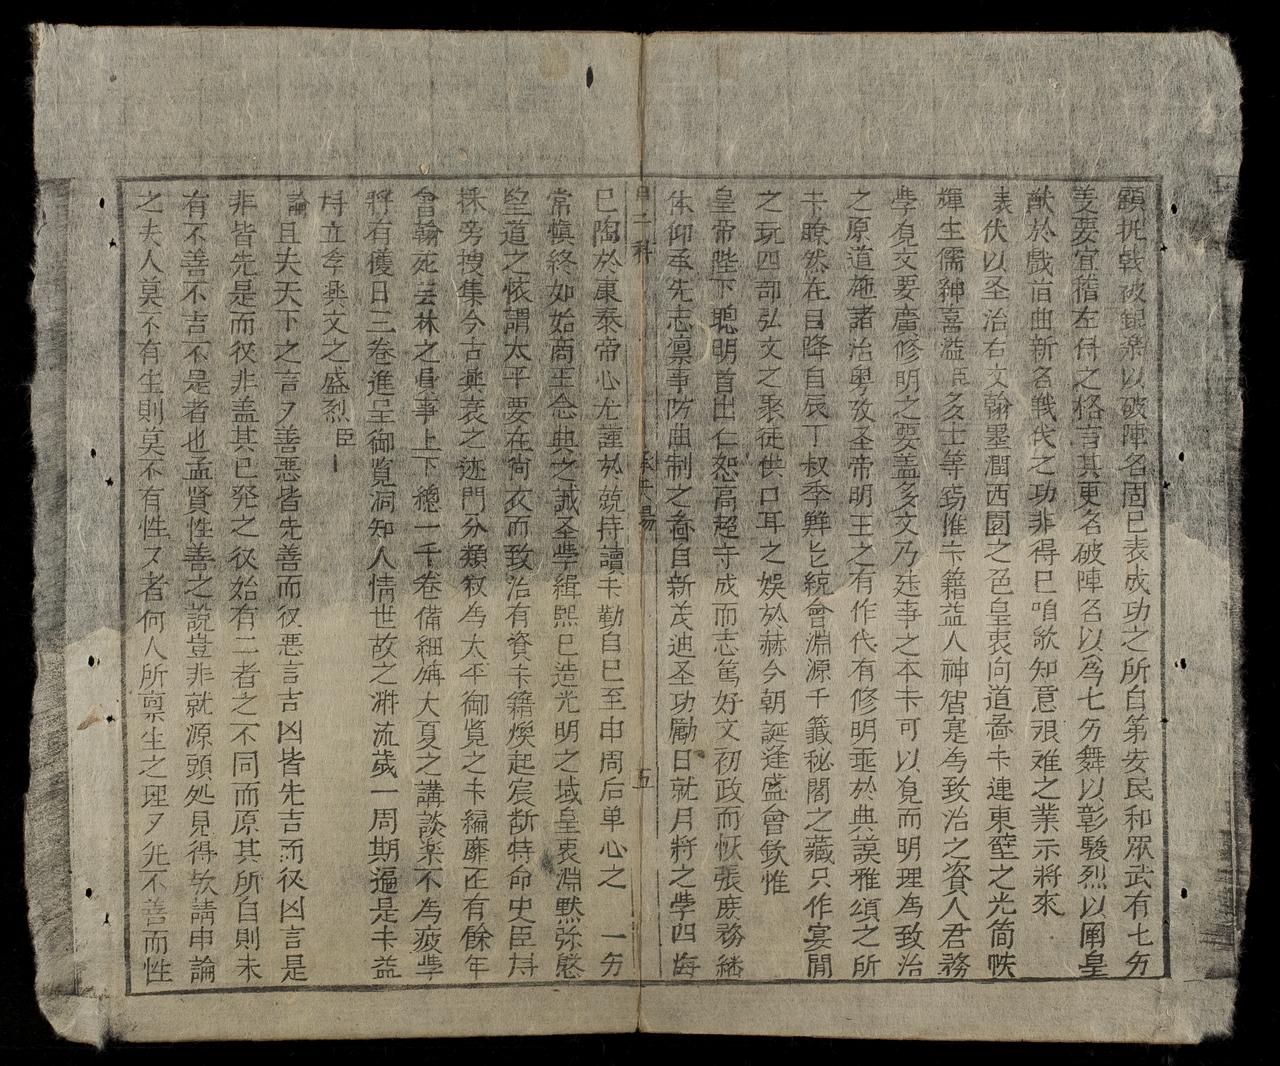 顕抚戟破銀楽以破陣名周已表成功之所自第安民和眾武有七夯
美要宜稽左传之格言其更名破陣名以為七夯舞以彰駿烈以闡皇
猷於戲首曲新名戰代之功非得已咱欤知意艰难之業示將來
表伏以圣治右文翰墨潤西園之色皇衷向道啚卡連東壁之光简帙
輝生儒紳喜溢臣矣士等窃惟卡籍益人神智寔為致治之資人君務
學覓文要廣修明之要盖矣文乃迋事之本卡可以覓而明理為致治
之原道施諸治粤攷圣帝明王之有作代有修明垂於典謨雅頌之所
卡瞭然在目降自辰丁叔季鮮匕統會淵源千籤秘閣之藏只作宴閒
之玩四部弘文之聚徒供口耳之娯於赫今朝誕逢盛會欽惟
皇帝陛下聰明首出仁恕高超守成而志篤好文初政而猒張庶務緒
休仰承先志凛事防曲制之啚自新茂迪圣功勵日就月將之斈四海
巳陶於東泰帝心尤謹於兢持讀卡勤自巳至申周后单心之 一夯
常慎終如始商王念典之誠圣斈緝熙巳造光明之域皇衷淵黙弥慇
望道之懐謂太平要在尚衣而致治有資卡籍煥起宸断特命史臣持
採旁搜集今古興衰之迹門分類叙為太平御覧之卡編靡正有餘年
會翰死芸林之員事上下總一千卷備細嫥大夏之講談楽不為疲斈
將有穫日三卷進呈御覧洞知人情世故之溿流歲一周期遍是卡益
持立李興文之盛烈臣丨
論且夫天下之言又善悪皆先善而役悪言吉凶皆先吉而役凶言是
非皆先是而役非盖其巳発之役始有二者之不同而原其所自則未
有不善不吉不是者也孟賢性善之說豈非就源頭处見得欤請申論
之夫人莫不有生則莫不有性又者何人所禀生之理又旡不善而性
五